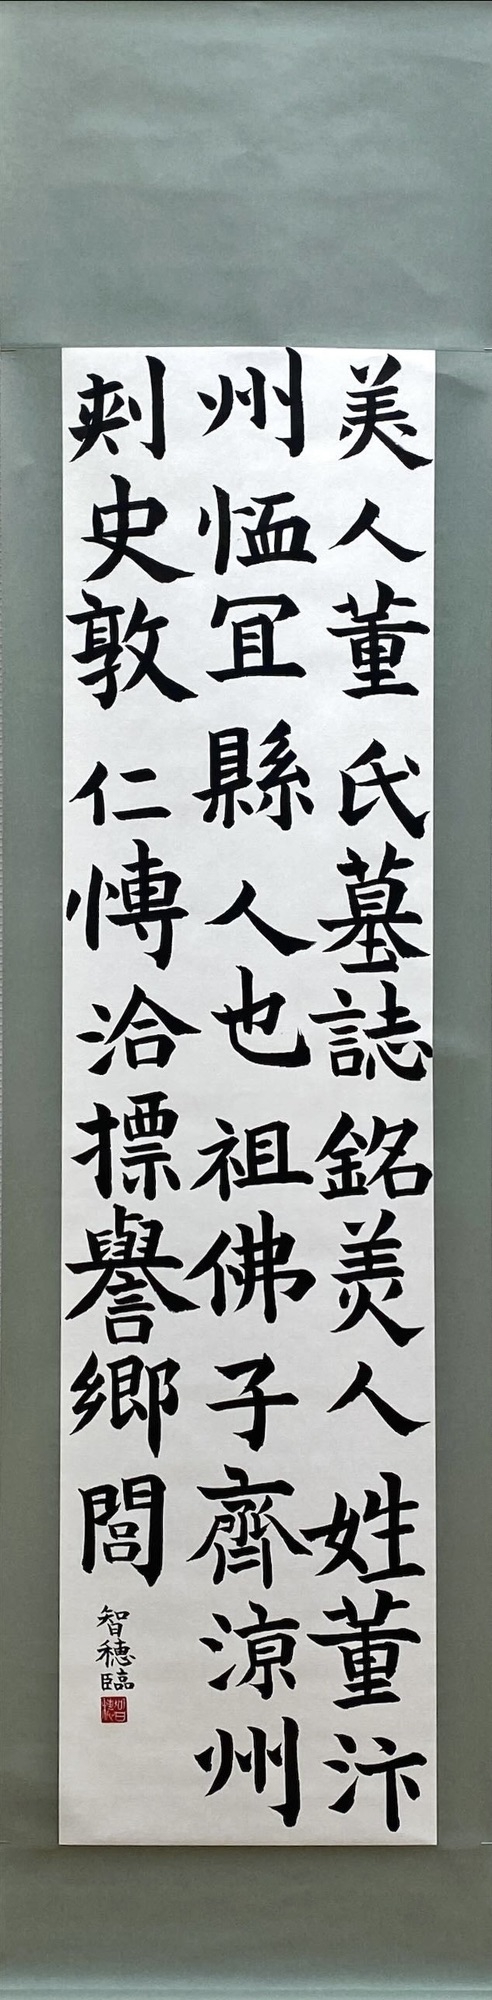 美人董氏墓誌銘美人姓董汴
州恤冝縣人也祖佛子齊涼州
刺史敦仁愽洽摽譽鄉閭
智穂臨